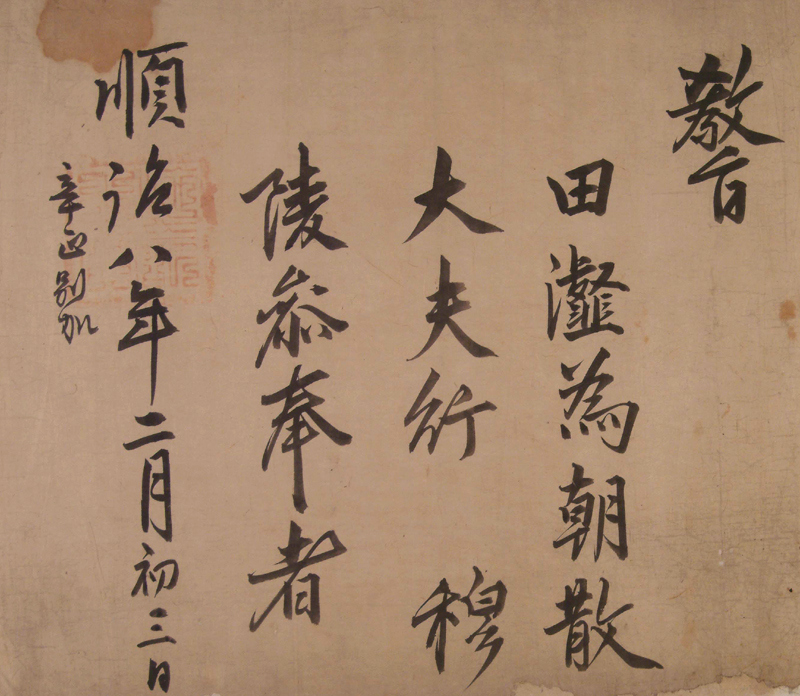 教旨
田瀣為朝散
大夫行 穆
陵叅奉者
順治八年二月初三日
辛正別加